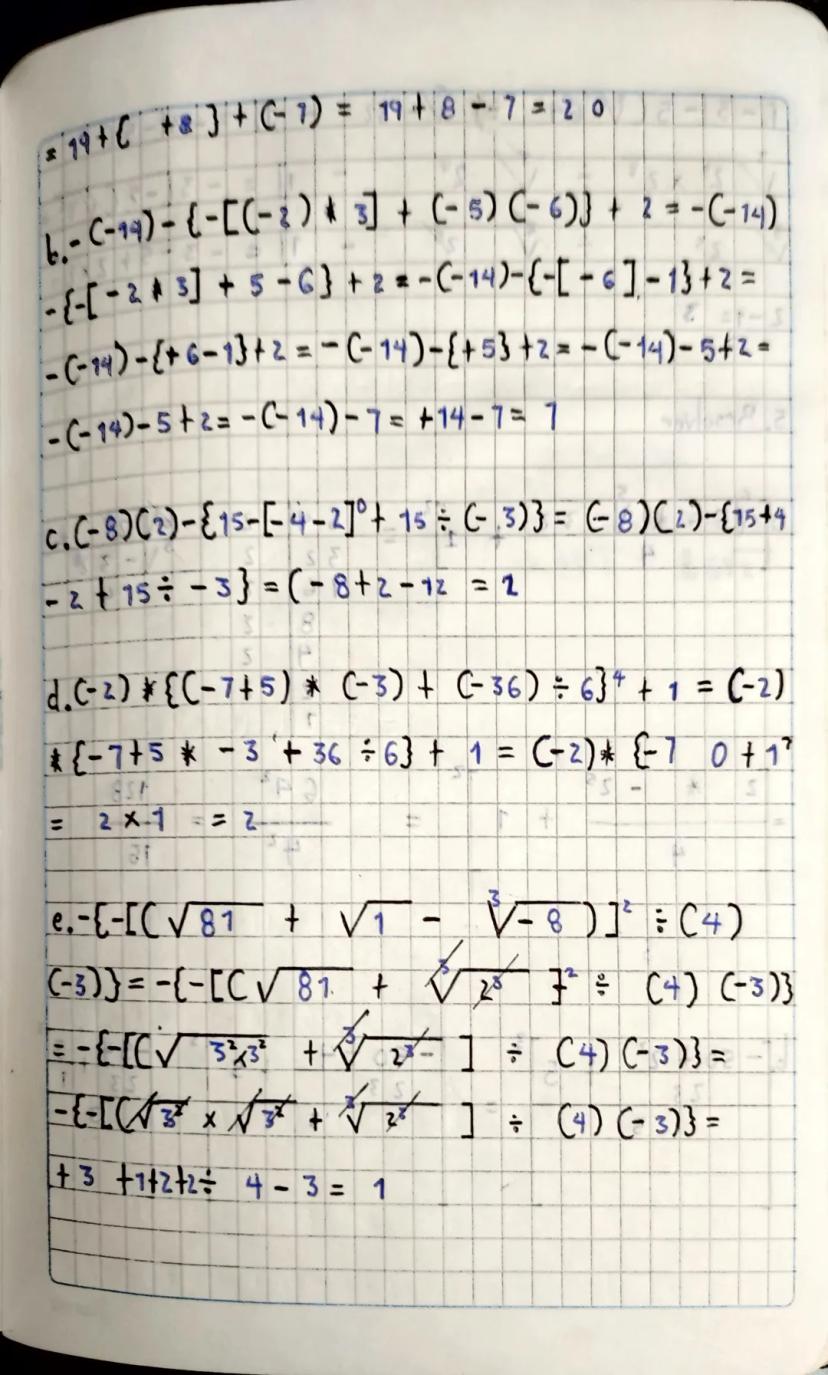 = 19 + { +8 } + (-7) = 19 + 8 - 7 = 20
b. -(-14) - {-[(-2) * 3] + (-5)(-6)} + 2 = -(-14)
-{-[-2 * 3] + 5 - 6} + 2 = -(-14) - {-[-6] - 1} + 2 =
-(-14) - {+6 - 1} + 2 = -(-14) - {+5} + 2 = -(-14) - 5 + 2 =
-(-14) - 5 + 2 = -(-14) - 7 = +14 - 7 = 7
c. (-8)(2) - {15 - [-4 - 2]⁰ + 15 ÷ (-3)} = (-8)(2) - {15 + 4
- 2 + 15 ÷ -3} = (-8 + 2 - 12 = 2
d. (-2) * {(-7 + 5) * (-3) + (-36) ÷ 6}⁴ + 1 = (-2)
* {-7 + 5 * -3 + 36 ÷ 6} + 1 = (-2) * {-7 0 + 1
= 2 x 1 = 2
e. -{-[(√81 + √1 - ³√-8)]² ÷ (4)
(-3)} = -{-[(√81 + ³√2³ ]² ÷ (4) (-3)}
= -{-[(√3²x3² + ³√2³ ] ÷ (4) (-3)} =
-{-[(√3² x √3² + ³√2³ ] ÷ (4) (-3)} =
+3 +1+2+2÷ 4 - 3 = 1